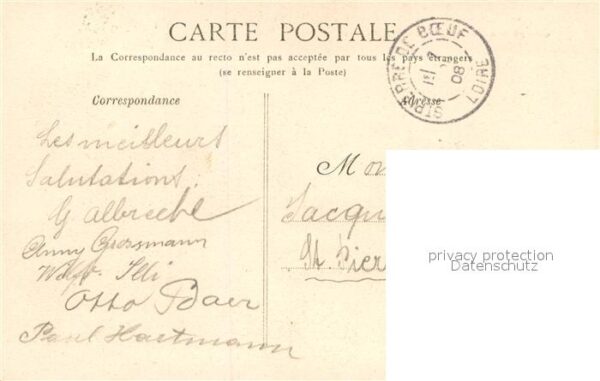 CARTE POSTALE
La Correspondance au recto n'est pas acceptée par tous les pays étrangers
(se renseigner à la Poste)
ST PRRE DE BŒUF
08
LOIRE
Correspondance
Adresse
Les meilleurs
Salutations.
G Albrecht
Anny Grossmann
Otto Baer
Paul Hartmann
Mon
Jacqu
St. Pier
privacy protection
Datenschutz